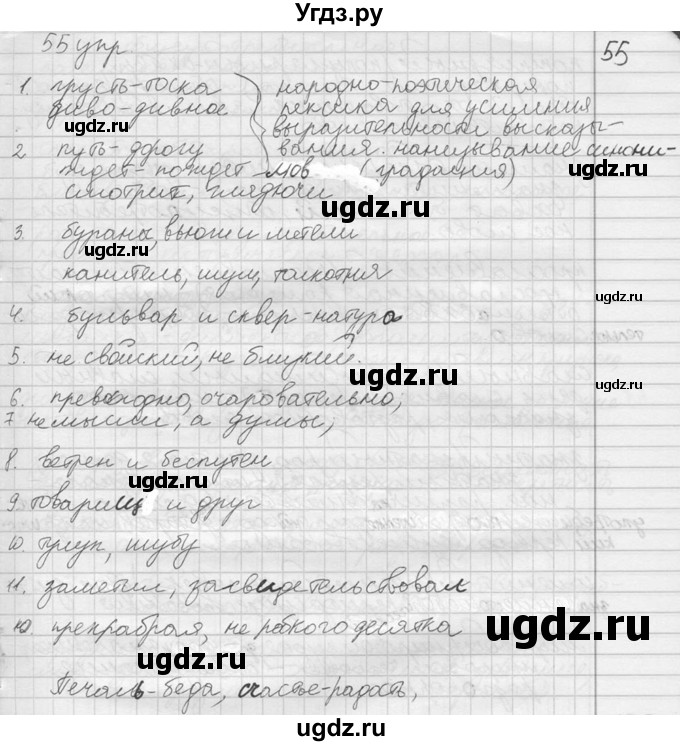 Угдз.ру
55 упр.
55
1. грусть-тоска
народно-поэтическая
диво-дивное
лексика для усиления
ugdz.ru
выразительности высказы-
2 путь-дорогу
вания. нанизывание синони-
ждет-пождет
мов (градация)
ugdz.ru
смотрит, глядючи
ugdz.ru
3. бураны, вьюги и метели
ugdz.ru
канитель, шум, толкотня
4. бульвар и сквер-натура
ugdz.ru
5. не свойский, не близкий.
ugdz.ru
ugdz.ru
6. превосходно, очаровательно,
7 не мысли, а думы,
8. ветрен и беспутен
ugdz.ru
9. товарищ и друг
ugdz.ru
10. тулуп, шубу
11. заметил, засвидетельствовал
10. прехрабрая, не робкого десятка
ugdz.ru
ugdz.ru
Печаль-беда, счастье-радость,
ugdz.ru